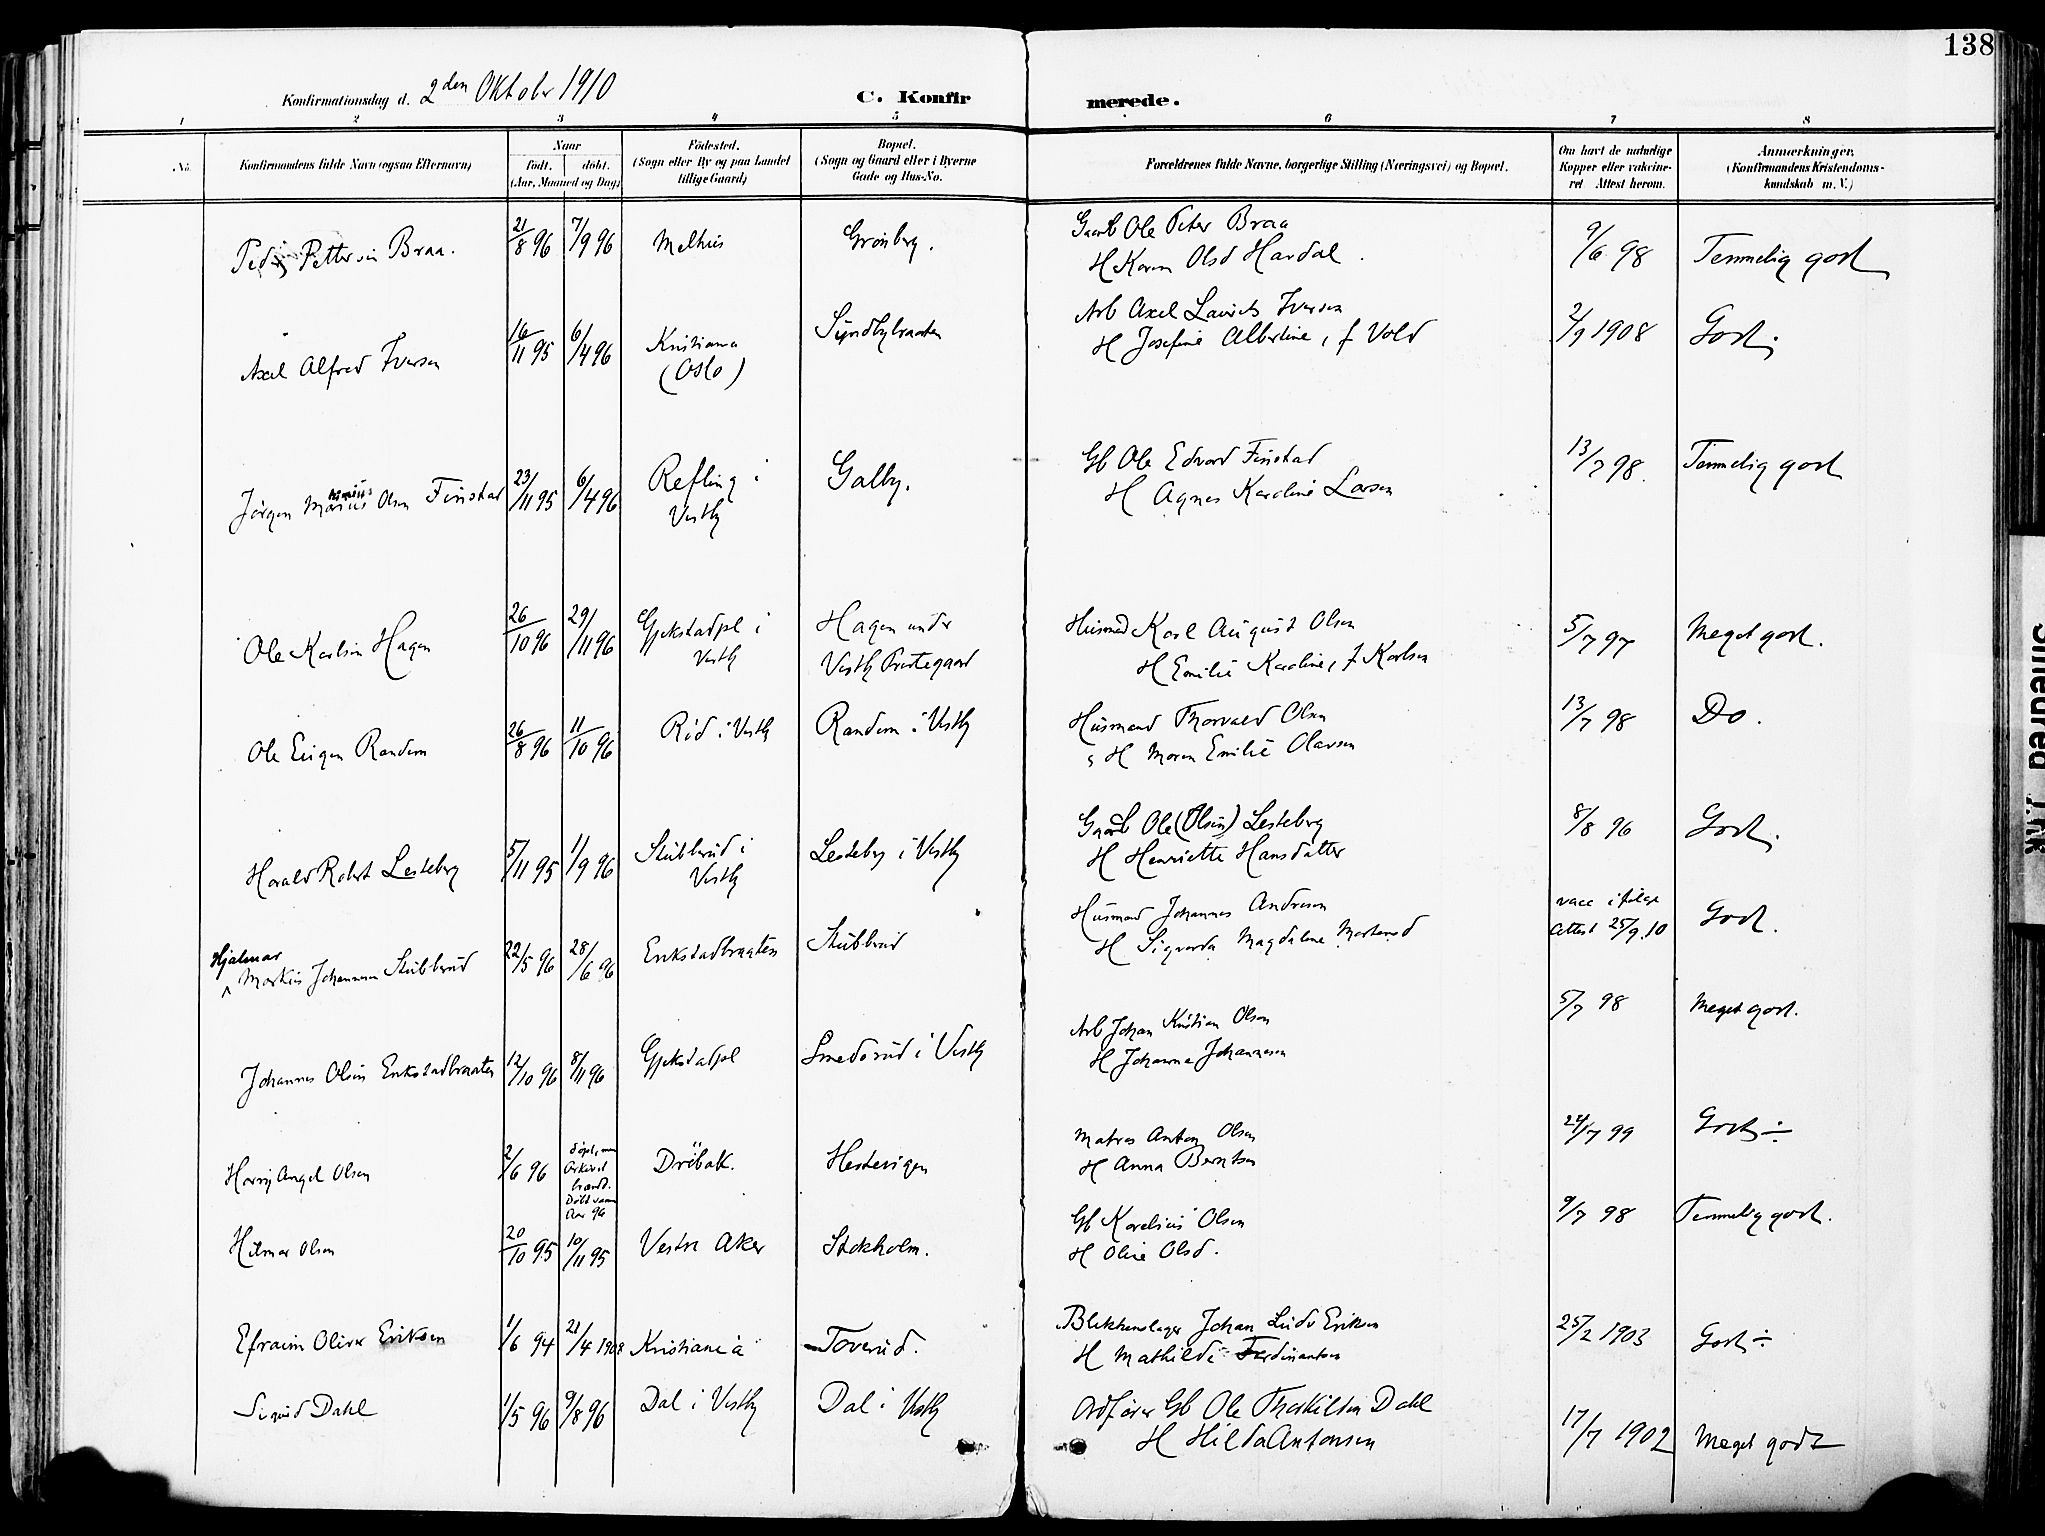 138
Konfirmationsdag d. 2den Oktober 1910
C. Konfirmerede.
1 2 3 4 5 6 7 8
No. Konfirmandens fulde Navn (ogsaa Efternavn)
Naar
født. døbt.
(Aar, Maaned og Dag)
Fødested.
(Sogn eller By og paa Landet
tillige Gaard)
Bopæl.
(Sogn og Gaard eller i Byerne
Gade og Hus-No.
Forældrenes fulde Navne, borgerlige Stilling (Næringsvei) og Bopæl.
Om havt de naturlige
Kopper eller vakcine-
ret Attest herom.
Anmærkninger.
(Konfirmandens Kristendoms-
kundskab m. V.)
Pettersen Braa. 21/8 96 7/9 96 Melhus Grønberg. Gaarb Ole Peter Braa 9/6 98 Temmelig godt
H Karen Olsd Hardal.
Axel Alfred Iversen 16/11 95 6/4 96 Kristiania Sundbybraaten Arb Axel Laurits Iversen 2/9 1908 Godt.
(Oslo) H Josefine Albertine, f Vold
Jørgen Marius Olsen Finstad 23/11 95 6/4 96 Refling i Galby. Gb Ole Edvard Finstad 13/7 98. Temmelig godt
Vestby H Agnes Karoline Larsen
Ole Karlsen Hagen 26/10 96 29/11 96 Gjekstadpl i Hagen under Husmd Karl August Olsen 5/7 97 Meget godt.
Vestby Vestby Prestegaard H Emilie Karoline, f Karlsen
Ole Eugen Randem 26/8 96 11/10 96 Rød i Vestby Randem i Vestby Husmand Thorvald Olsen 13/7 98 Do.
H Maren Emilie Olavsen
Harald Robert Lesteberg 5/11 95 1/9 96 Stubberud i Lesteberg i Vestby Gaarb Ole (Olsen) Lesteberg 8/8 96 Godt.
Vestby H Henriette Hansdatter
Hjalmar
Markus Johannesen Stubberud 22/5 96 28/6 96 Erikstadbraaten Stubberud Husmand Johannes Andresen vacc ifølge Godt.
H Sigvarda Magdalene Mortensd Attest 25/9.10
Johannes Olsen Erikstadbraaten 12/10 96 8/11 96 Gjekstadpl Smedsrud i Vestby Arb Johan Kristian Olsen 5/7 98 Meget godt.
H Johanna Johannesen
Harry Angel Olsen 2/6 96 Drøbak. Hestevigen Matros Anton Olsen 24/7 99 Godt ÷
H Anna Berntsen
Arkivet
brændt.
Døbt
Aar 96
Hilmar Olsen 20/10 95 10/11 95 Vestre Aker Stokholm. Gb Karelius Olsen 9/7 98 Temmelig godt.
H Oline Olsd.
Efraim Oliver Eriksen 1/6 94 21/4 1908 Kristiania Toverud. Blikkenslager Johan Ludv Eriksen 25/2 1903 Godt ÷
H Mathilde Ferdinantsen
Sigurd Dahl 1/5 96 9/8 96 Dal i Vestby Dal i Vestby Ordfører Gb Ole Thorkilsen Dahl 17/7 1902 Meget godt
H Hilda Antonsen